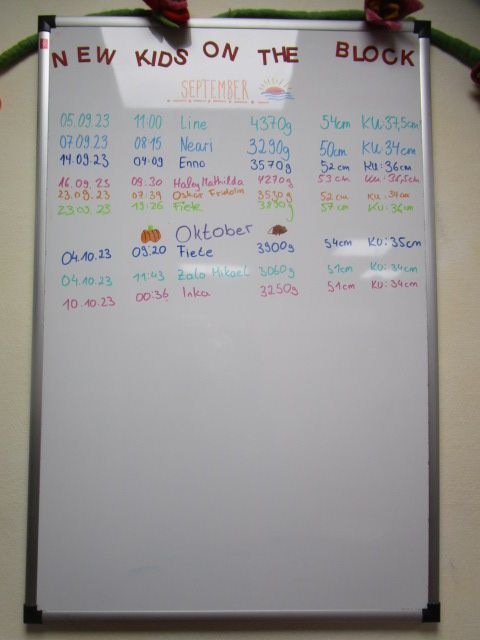 NEW KIDS ON THE BLOCK
SEPTEMBER
05.09.23 11:00 Line 4370g 54cm KU: 37,5cm
07.09.23 08:15 Neari 3290g 50cm KU: 34cm
14.09.23 04:09 Enno 3570g 52cm KU: 36cm
16.09.23 09:30 Haley Mathilda 4270g 53cm KU: 36,5cm
23.09.23 07:39 Oskar 3530g 52cm KU: 34cm
23.09.23 19:26 Fiete 3890g 57cm KU: 36cm
Oktober
04.10.23 09:20 Fiete 3900g 54cm KU: 35cm
04.10.23 11:43 Zalo Mikael 3060g 51cm KU: 34cm
10.10.23 00:36 Inka 3250g 51cm KU: 34cm